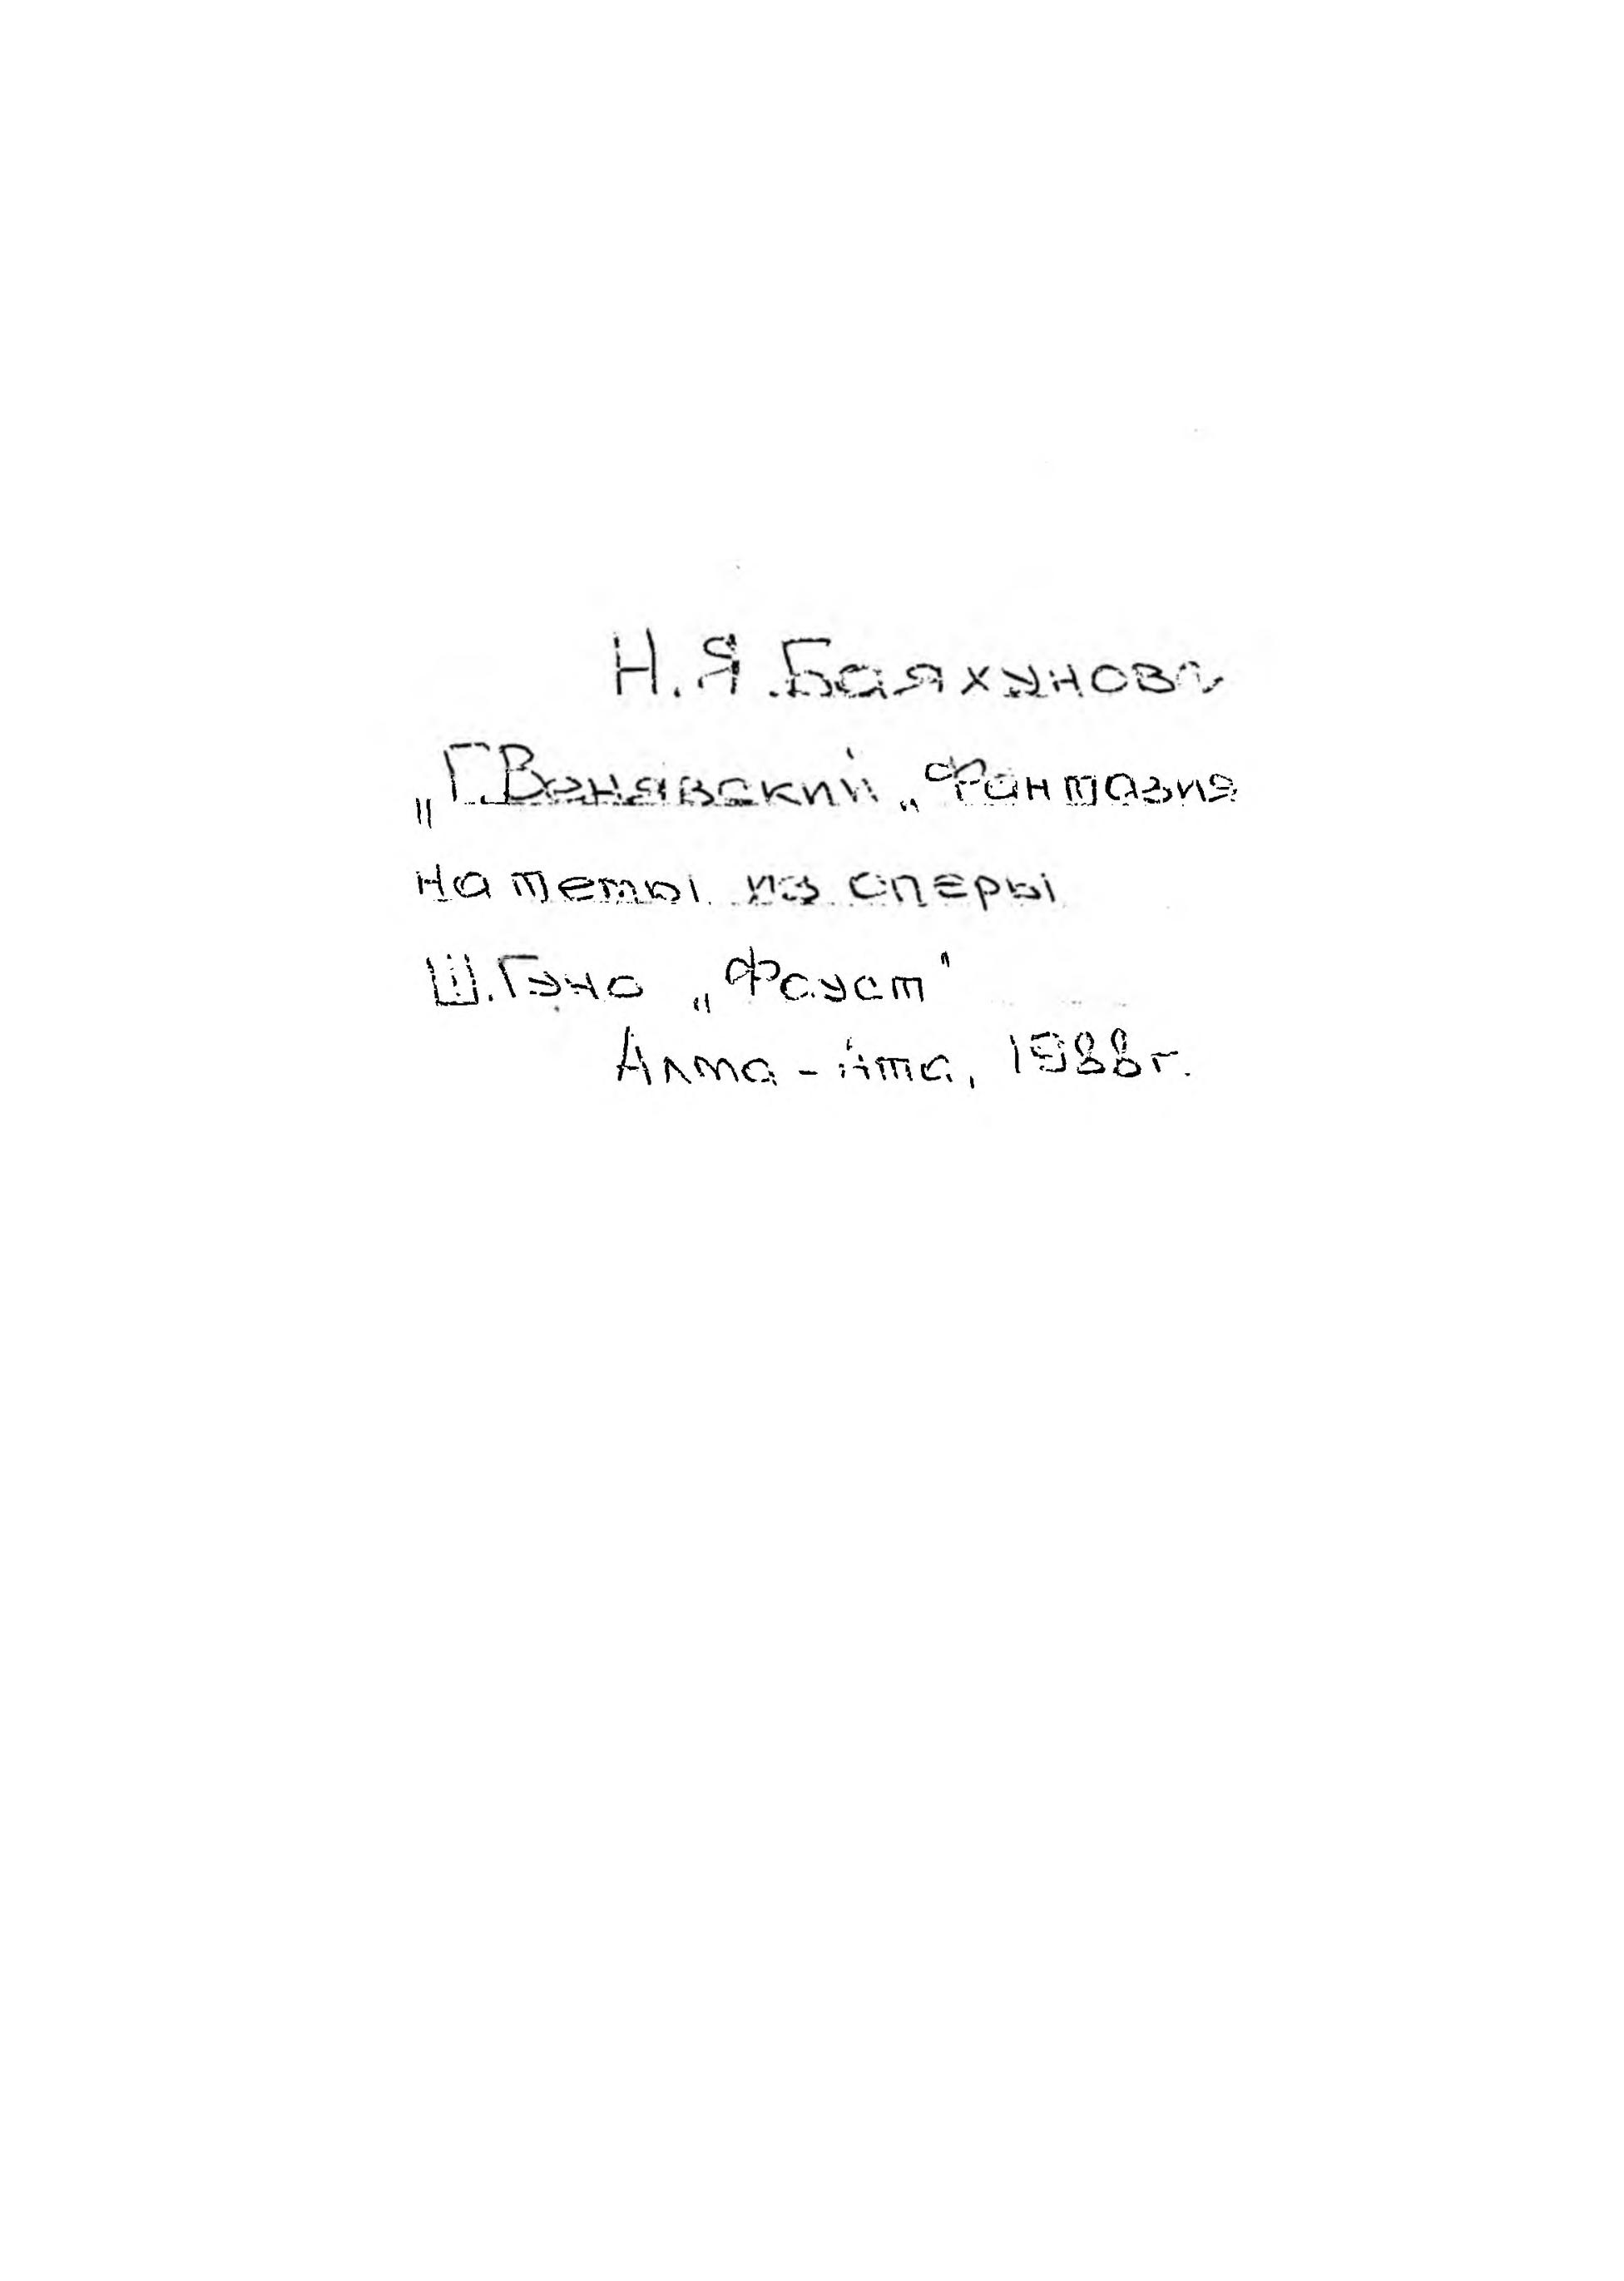 Н.Я.Баяхунова
„Г.Венявский „Фантазия
на темы из оперы
Ш.Гуно „Фауст"
Алма-Ата, 1988г.